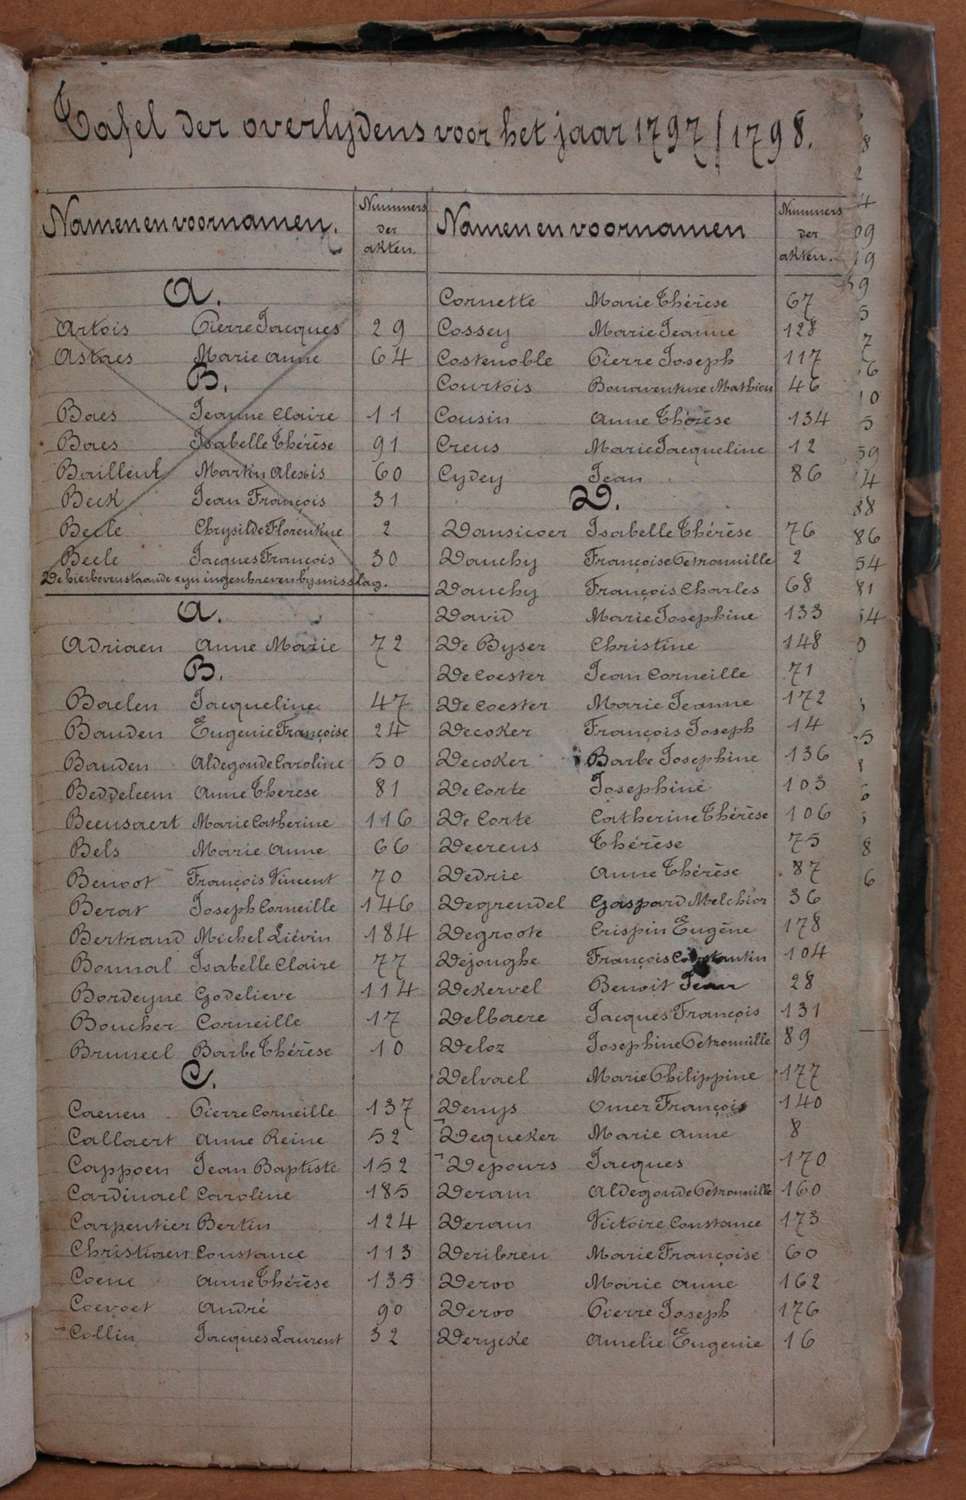 Tafel der overlijdens voor het jaar 1797/1798.
Namen en voornamen. Nummers der akten.
A.
Artois Pierre Jacques 29
Astaes Marie Anne 64
B.
Baes Jeanne Claire 11
Baes Isabelle Thérèse 91
Bailleul Martin Alexis 60
Beck Jean François 31
Beele Chrysilde Florentine 2
Beele Jacques François 30
De hierbovenstaande zijn ingeschreven bij misslag.
A.
Adriaen Anne Marie 72
B.
Baelen Jacqueline 47
Bauden Eugenie Françoise 24
Bauden Aldegonde Caroline 50
Beddeleem Anne Therese 81
Beensaert Marie Catherine 116
Bels Marie Anne 66
Benoot François Vincent 70
Berat Joseph Corneille 146
Bertrand Michel Liévin 184
Bonnal Isabelle Claire 77
Bordeyne Godelieve 114
Boucher Corneille 17
Bruneel Barbe Thérèse 10
C.
Caenen Pierre Corneille 137
Callaert Anne Reine 52
Cappoen Jean Baptiste 152
Cardinael Caroline 185
Carpentier Bertin 124
Christiaen Constance 113
Coene Anne Thérèse 135
Coevoet André 90
Collin Jacques Laurent 32
Namen en voornamen Nummers der akten.
Cornette Marie Thérèse 67
Cossey Marie Jeanne 128
Costenoble Pierre Joseph 117
Courtois Bonaventure Mathieu 46
Cousin Anne Thérèse 134
Creus Marie Jacqueline 12
Cydey Jean 86
D.
Dansicoer Isabelle Thérèse 76
Dauchy Françoise Petronuille 2
Dauchy François Charles 68
David Marie Josephine 133
De Byser Christine 148
De Coester Jean Corneille 71
De Coester Marie Jeanne 172
Decoker François Joseph 14
Decoker Barbe Josephine 136
De Corte Josephine 103
De Corte Catherine Thérèse 106
Decreus Thérèse 75
Dedrie Anne Thérèse 87
Degrendel Gaspard Melchior 36
Degroote Crispin Eugène 178
Dejonghe François Constantin 104
Dekervel Benoit Jean 28
Delbaere Jacques François 131
Deloz Josephine Petronuille 89
Delvael Marie Philippine 177
Denys Omer François 140
Dequeker Marie Anne 8
Depours Jacques 170
Deram Aldegonde Petronuille 160
Deram Victoire Constance 173
Deribreu Marie Françoise 60
Deroo Marie Anne 162
Deroo Pierre Joseph 176
Derycke Amelie Eugenie 16